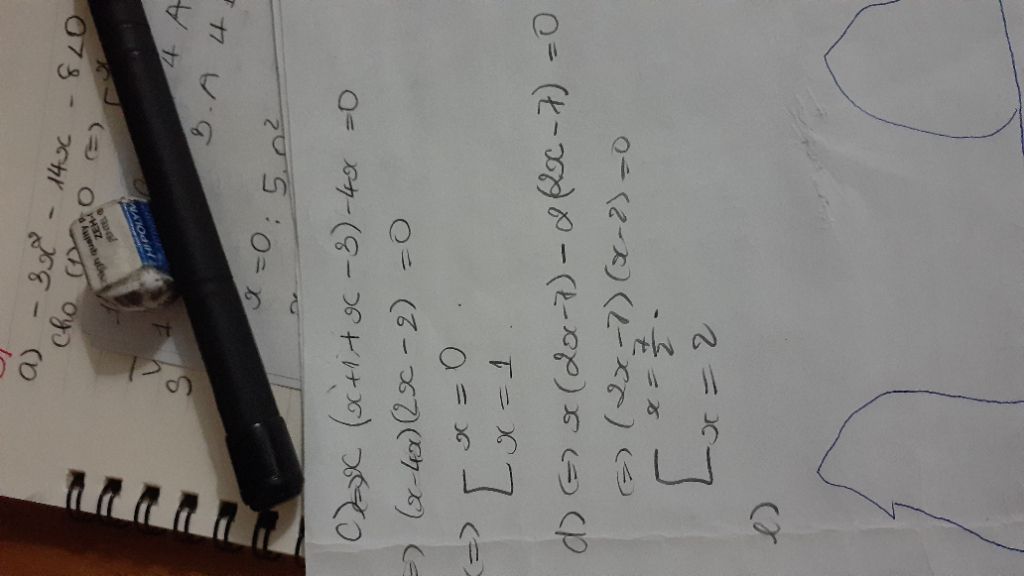 a) - 3x² - 14x - 8 < 0
cho
x = 0 ; 5.0²
3 . A 4
4 A
c) <=> x (x+1+x-3) - 4x = 0
=> (x-4x)(2x-2) = 0
<=> [ x = 0
x = 1
d) <=> x (2x-7) - 2 (2x-7) = 0
<=> (2x-7)(x-2) = 0
[ x = 7/2 .
x = 2
e)